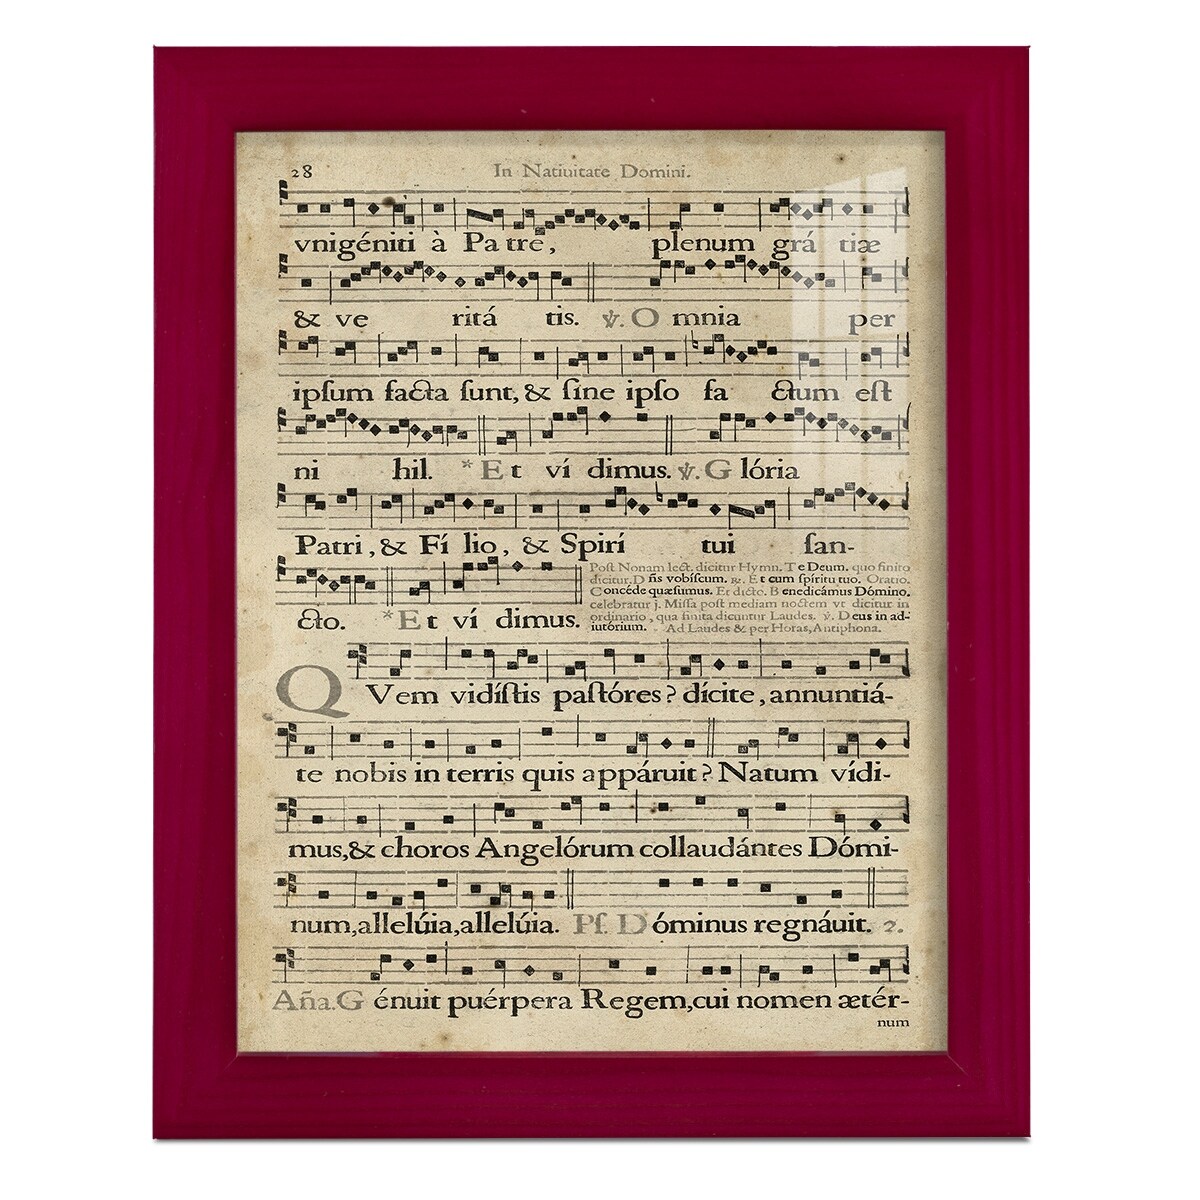 28 In Natiuitate Domini.
vnigéniti à Pa tre, plenum grá tiæ
& ve ritá tis. ℣. O mnia per
ipſum facta ſunt, & ſine ipſo fa ctum eſt
ni hil. * Et ví dimus. ℣. G lória
Patri, & Fí lio, & Spirí tui ſan-
cto. * Et ví dimus.
Poſt Nonam lect. dicitur Hymn. Te Deum. quo finito
dicitur. D ñs vobíſcum. ℟. Et cum ſpíritu tuo. Oratio.
Concéde quæſumus. Et dicto. B enedicámus Dómino.
celebratur j. Miſſa poſt mediam noctem vt dicitur in
ordinario, qua finita dicuntur Laudes. ℣. Deus in ad-
iutórium. Ad Laudes & per Horas, Antiphona.
QVem vidíſtis paſtóres? dícite, annuntiá-
te nobis in terris quis appáruit? Natum vídi-
mus, & choros Angelórum collaudántes Dómi-
num, allelúia, allelúia. Pſ. Dóminus regnáuit. 2.
Aña. G énuit puérpera Regem, cui nomen ætér-
num